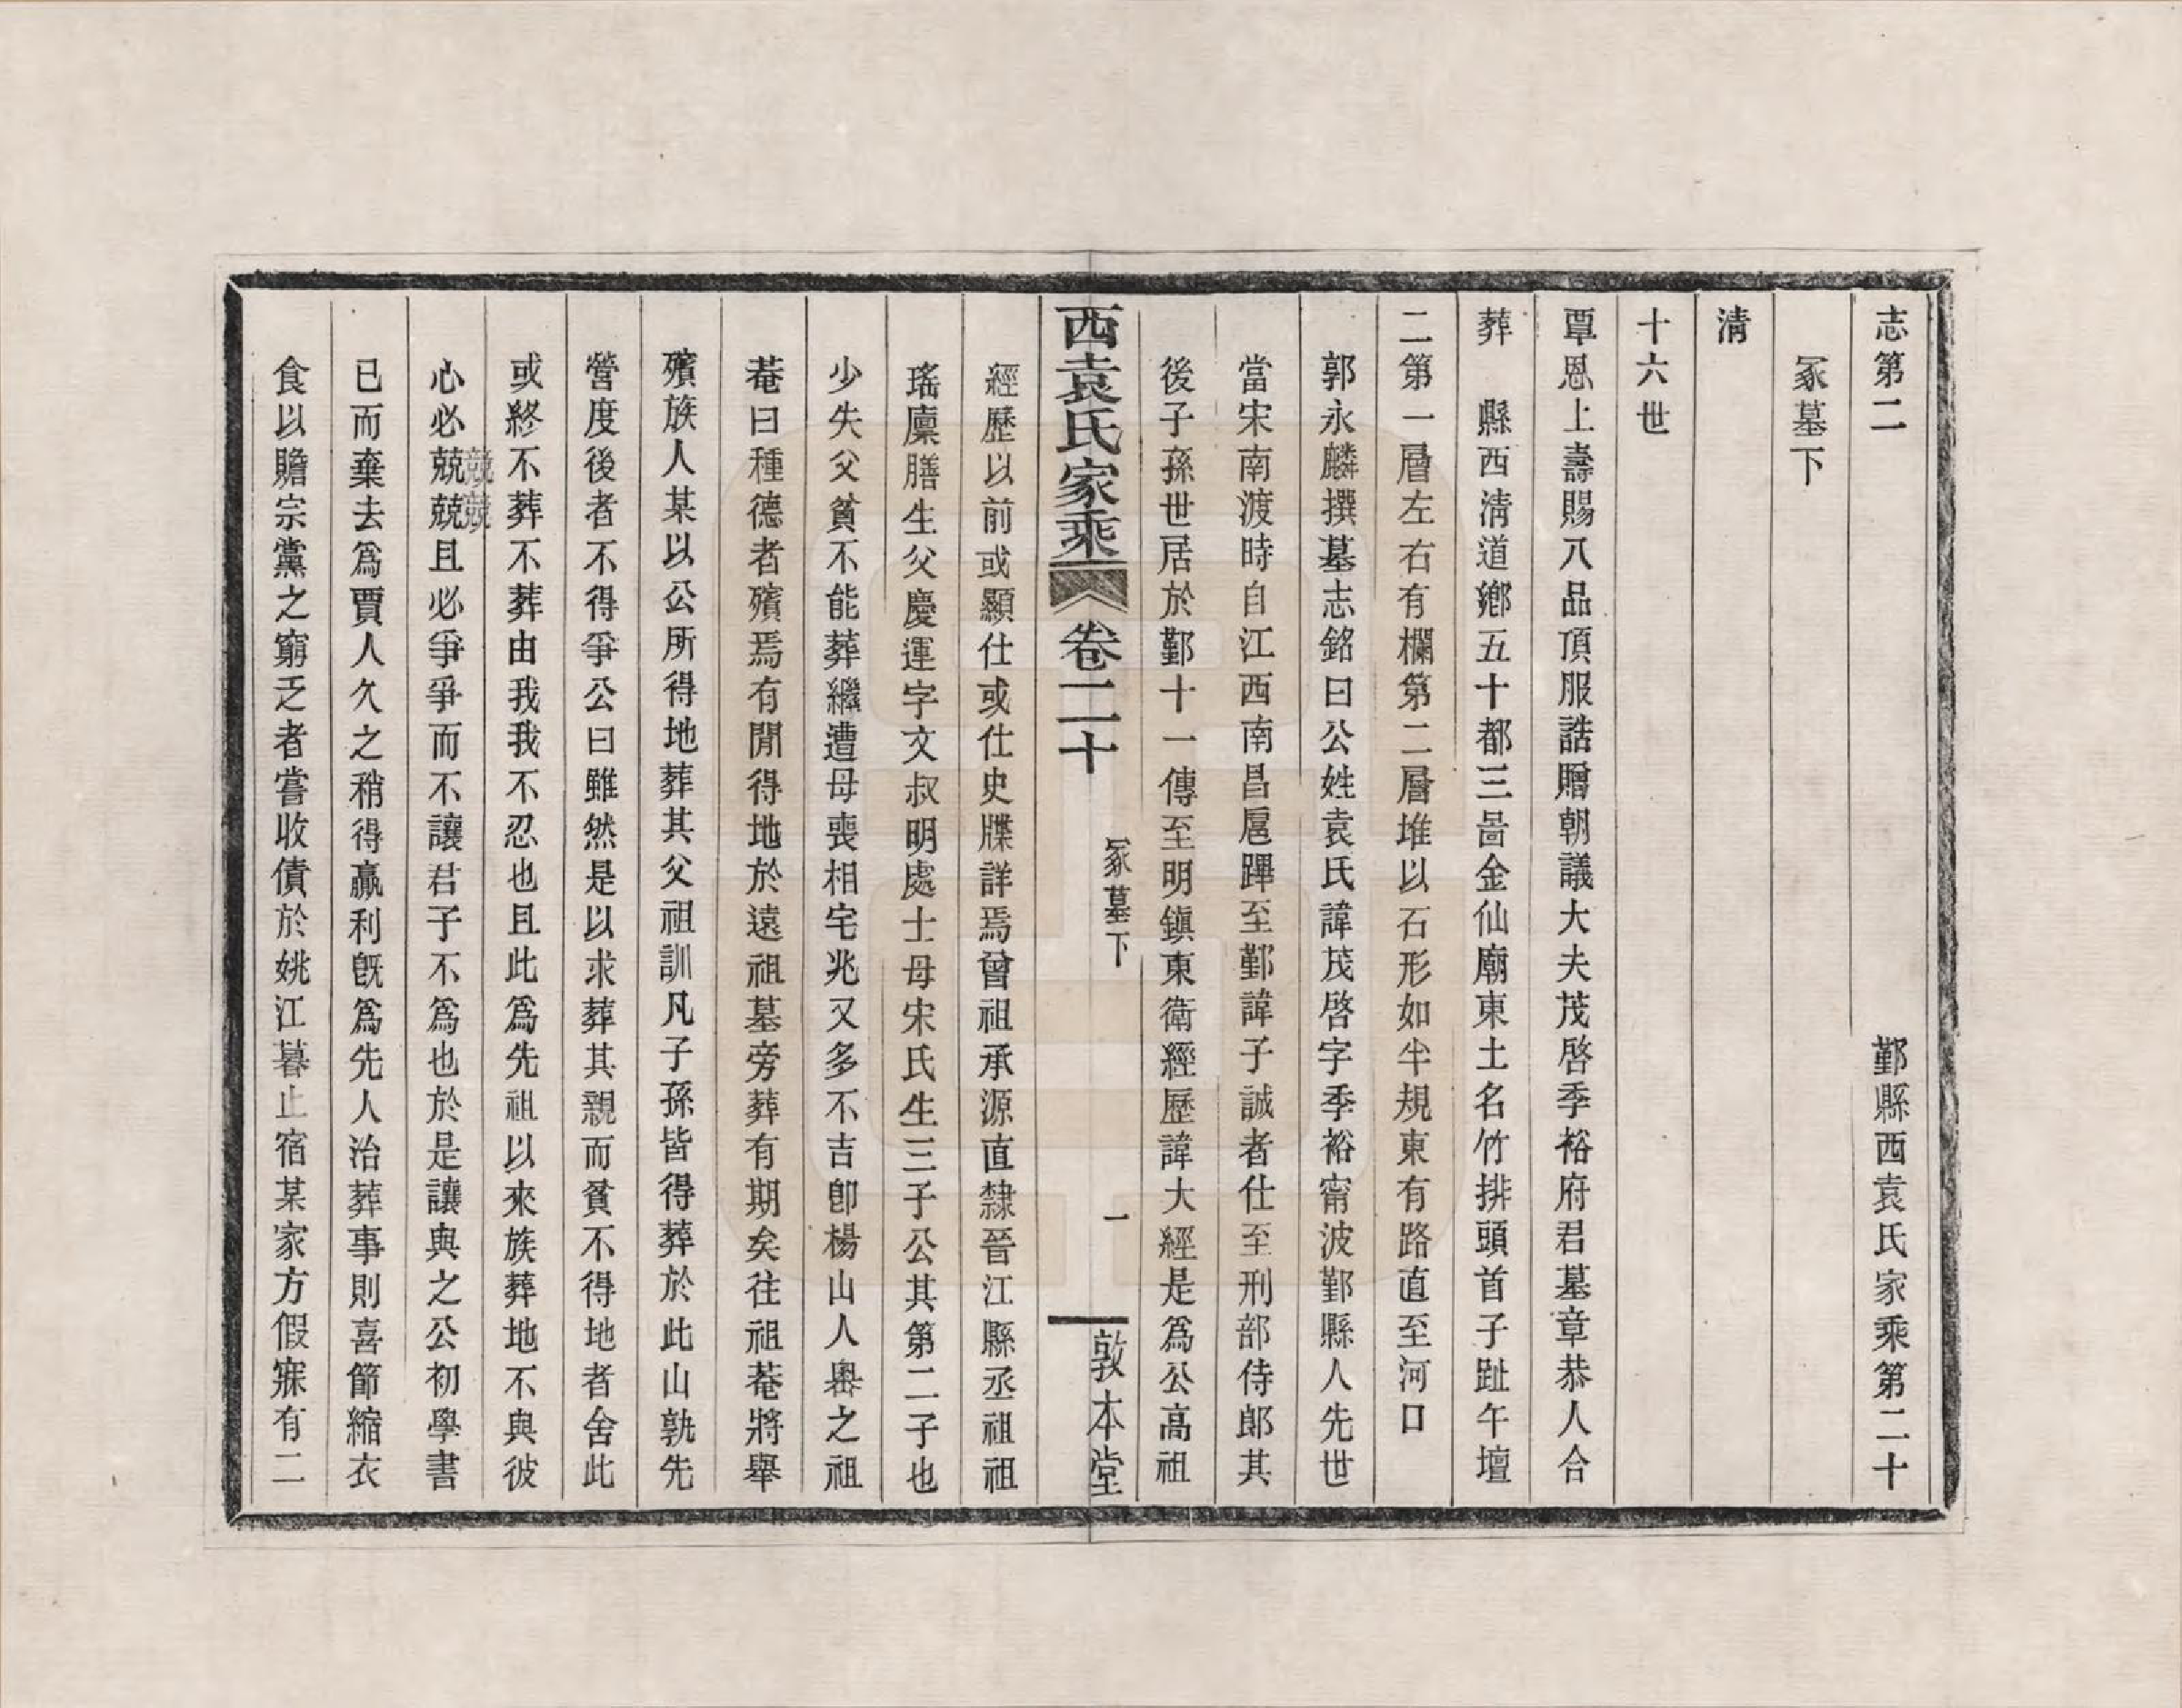 志第二　鄞縣西袁氏家乘第二十
冢墓下
淸
十六世
覃恩上壽賜八品頂服誥贈朝議大夫茂啓季裕府君墓章恭人合
葬　縣西淸道鄕五十都三啚金仙廟東土名竹排頭首子趾午壇
二第一層左右有欄第二層堆以石形如半規東有路直至河口
郭永麟撰墓志銘曰公姓袁氏諱茂啓字季裕甯波鄞縣人先世
當宋南渡時自江西南昌扈蹕至鄞諱子誠者仕至刑部侍郎其
後子孫世居於鄞十一傳至明鎭東衛經歷諱大經是爲公高祖
西袁氏家乘　卷二十　冢墓下　一　敦本堂
經歷以前或顯仕或仕史牒詳焉曾祖承源直隸晉江縣丞祖祖
瑤廩膳生父慶運字文叔明處士母宋氏生三子公其第二子也
少失父貧不能葬繼遭母喪相宅兆又多不吉卽楊山人輿之祖
菴曰種德者殯焉有閒得地於遠祖墓旁葬有期矣往祖菴將舉
殯族人某以公所得地葬其父祖訓凡子孫皆得葬於此山孰先
營度後者不得爭公曰雖然是以求葬其親而貧不得地者舍此
或終不葬不葬由我我不忍也且此爲先祖以來族葬地不與彼
心必兢兢且必爭爭而不讓君子不爲也於是讓與之公初學書
競競
已而棄去爲賈人久之稍得贏利旣爲先人治葬事則喜節縮衣
食以贍宗黨之窮乏者嘗收債於姚江暮止宿某家方假寐有二